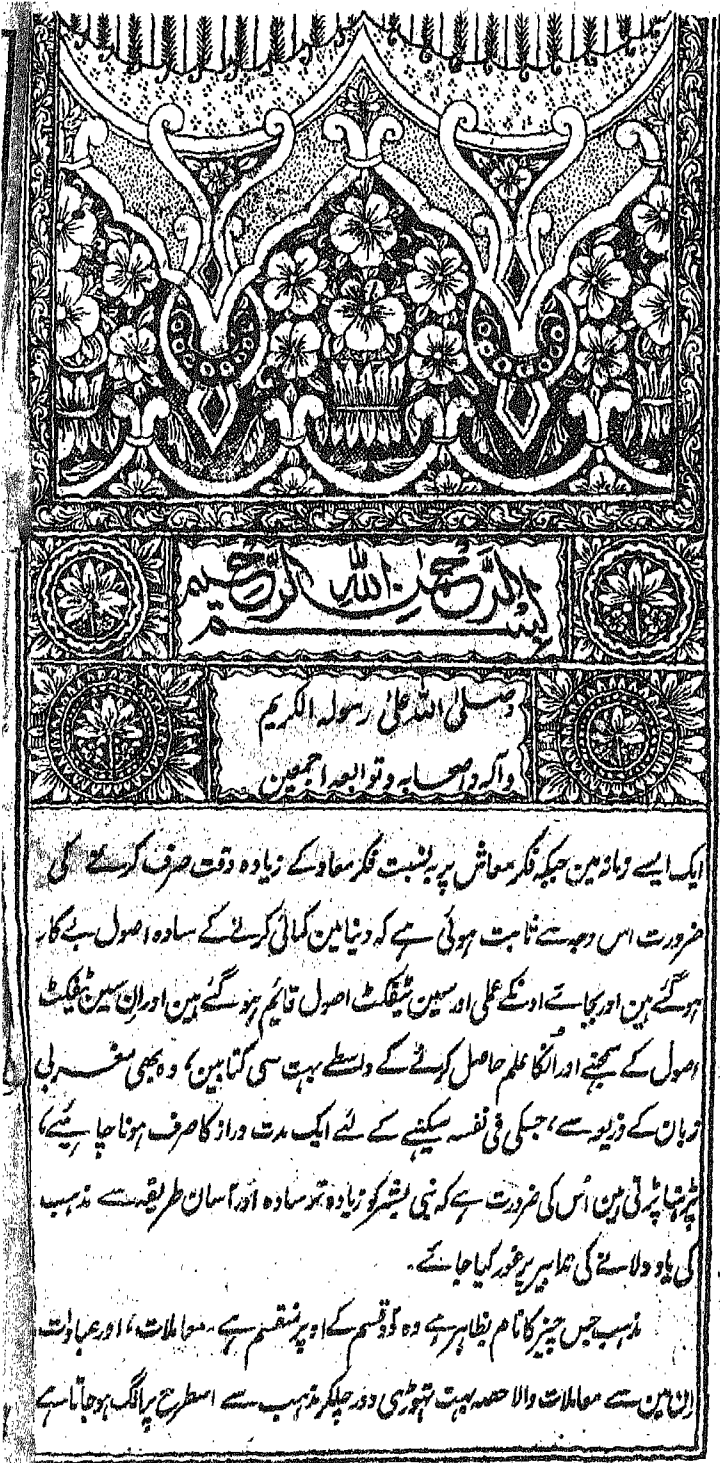 بسم الله الرَّحْمٰنِ الرَّحيم
وصلى الله علىٰ رسوله الكريم
وآله واصحابه وتوابعه اجمعين
ایک ایسے زمانہ مین جبکہ فکر معاش پر بہ نسبت فکر معاد کے زیادہ وقت صرف کرنے کی
ضرورت اس وجہ سے ثابت ہوئی ہے کہ دنیا مین کمائی کرنے کے سادہ اصول بے کار
ہوگئے ہین اور بجائے اونکے عملی اور سین ٹیفکٹ اصول قایم ہوگئے ہین اور اِن سین ٹیفکٹ
اصول کے سمجہنے اور اُنکا علم حاصل کرنے کے واسطے بہت سی کتابین، وہ بھی مغربی
زبان کے ذریعہ سے، جسکی فی نفسہ سیکہنے کے لئے ایک مدت دراز کا صرف ہونا چاہیئے،
پڑہنا پڑتی ہین اُس کی ضرورت ہے کہ بنی بشر کو زیادہ تر سادہ اور آسان طریقہ سے مذہب
کی یاد دلانے کی تدابیر پر غور کیا جائے۔
مذہب جس چیز کا نام بظاہر ہے وہ دو قسم کے اوپر منقسم ہے۔ معاملات، اور عبادات
اِن مین سے معاملات والا حصہ بہت تہوڑی دور چلکر مذہب سے اسطرح پر الگ ہوجاتا ہے